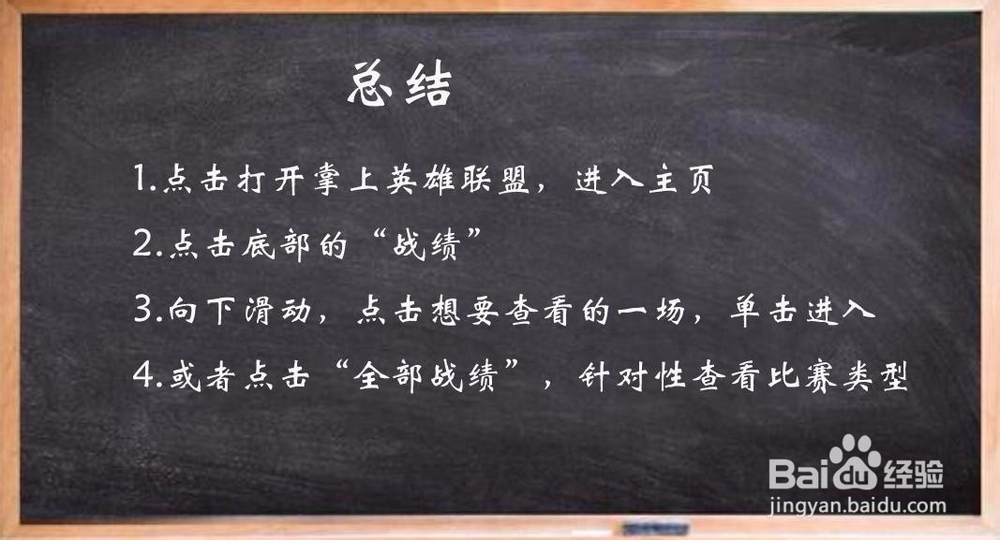 总结
1.点击打开掌上英雄联盟，进入主页
2.点击底部的“战绩”
3.向下滑动，点击想要查看的一场，单击进入
4.或者点击“全部战绩”，针对性查看比赛类型
Baidu经验
jingyan.baidu.com